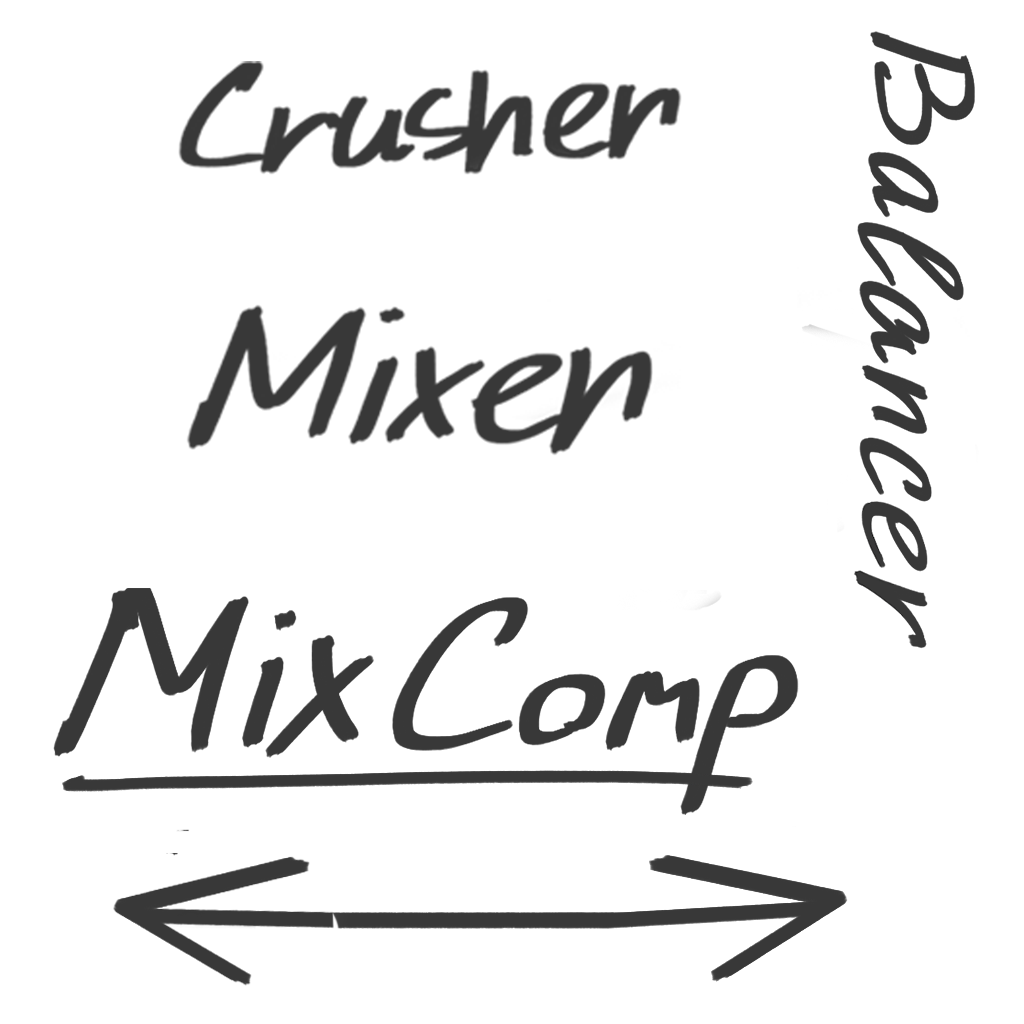 Crusher
Mixer
MixComp
Balancer